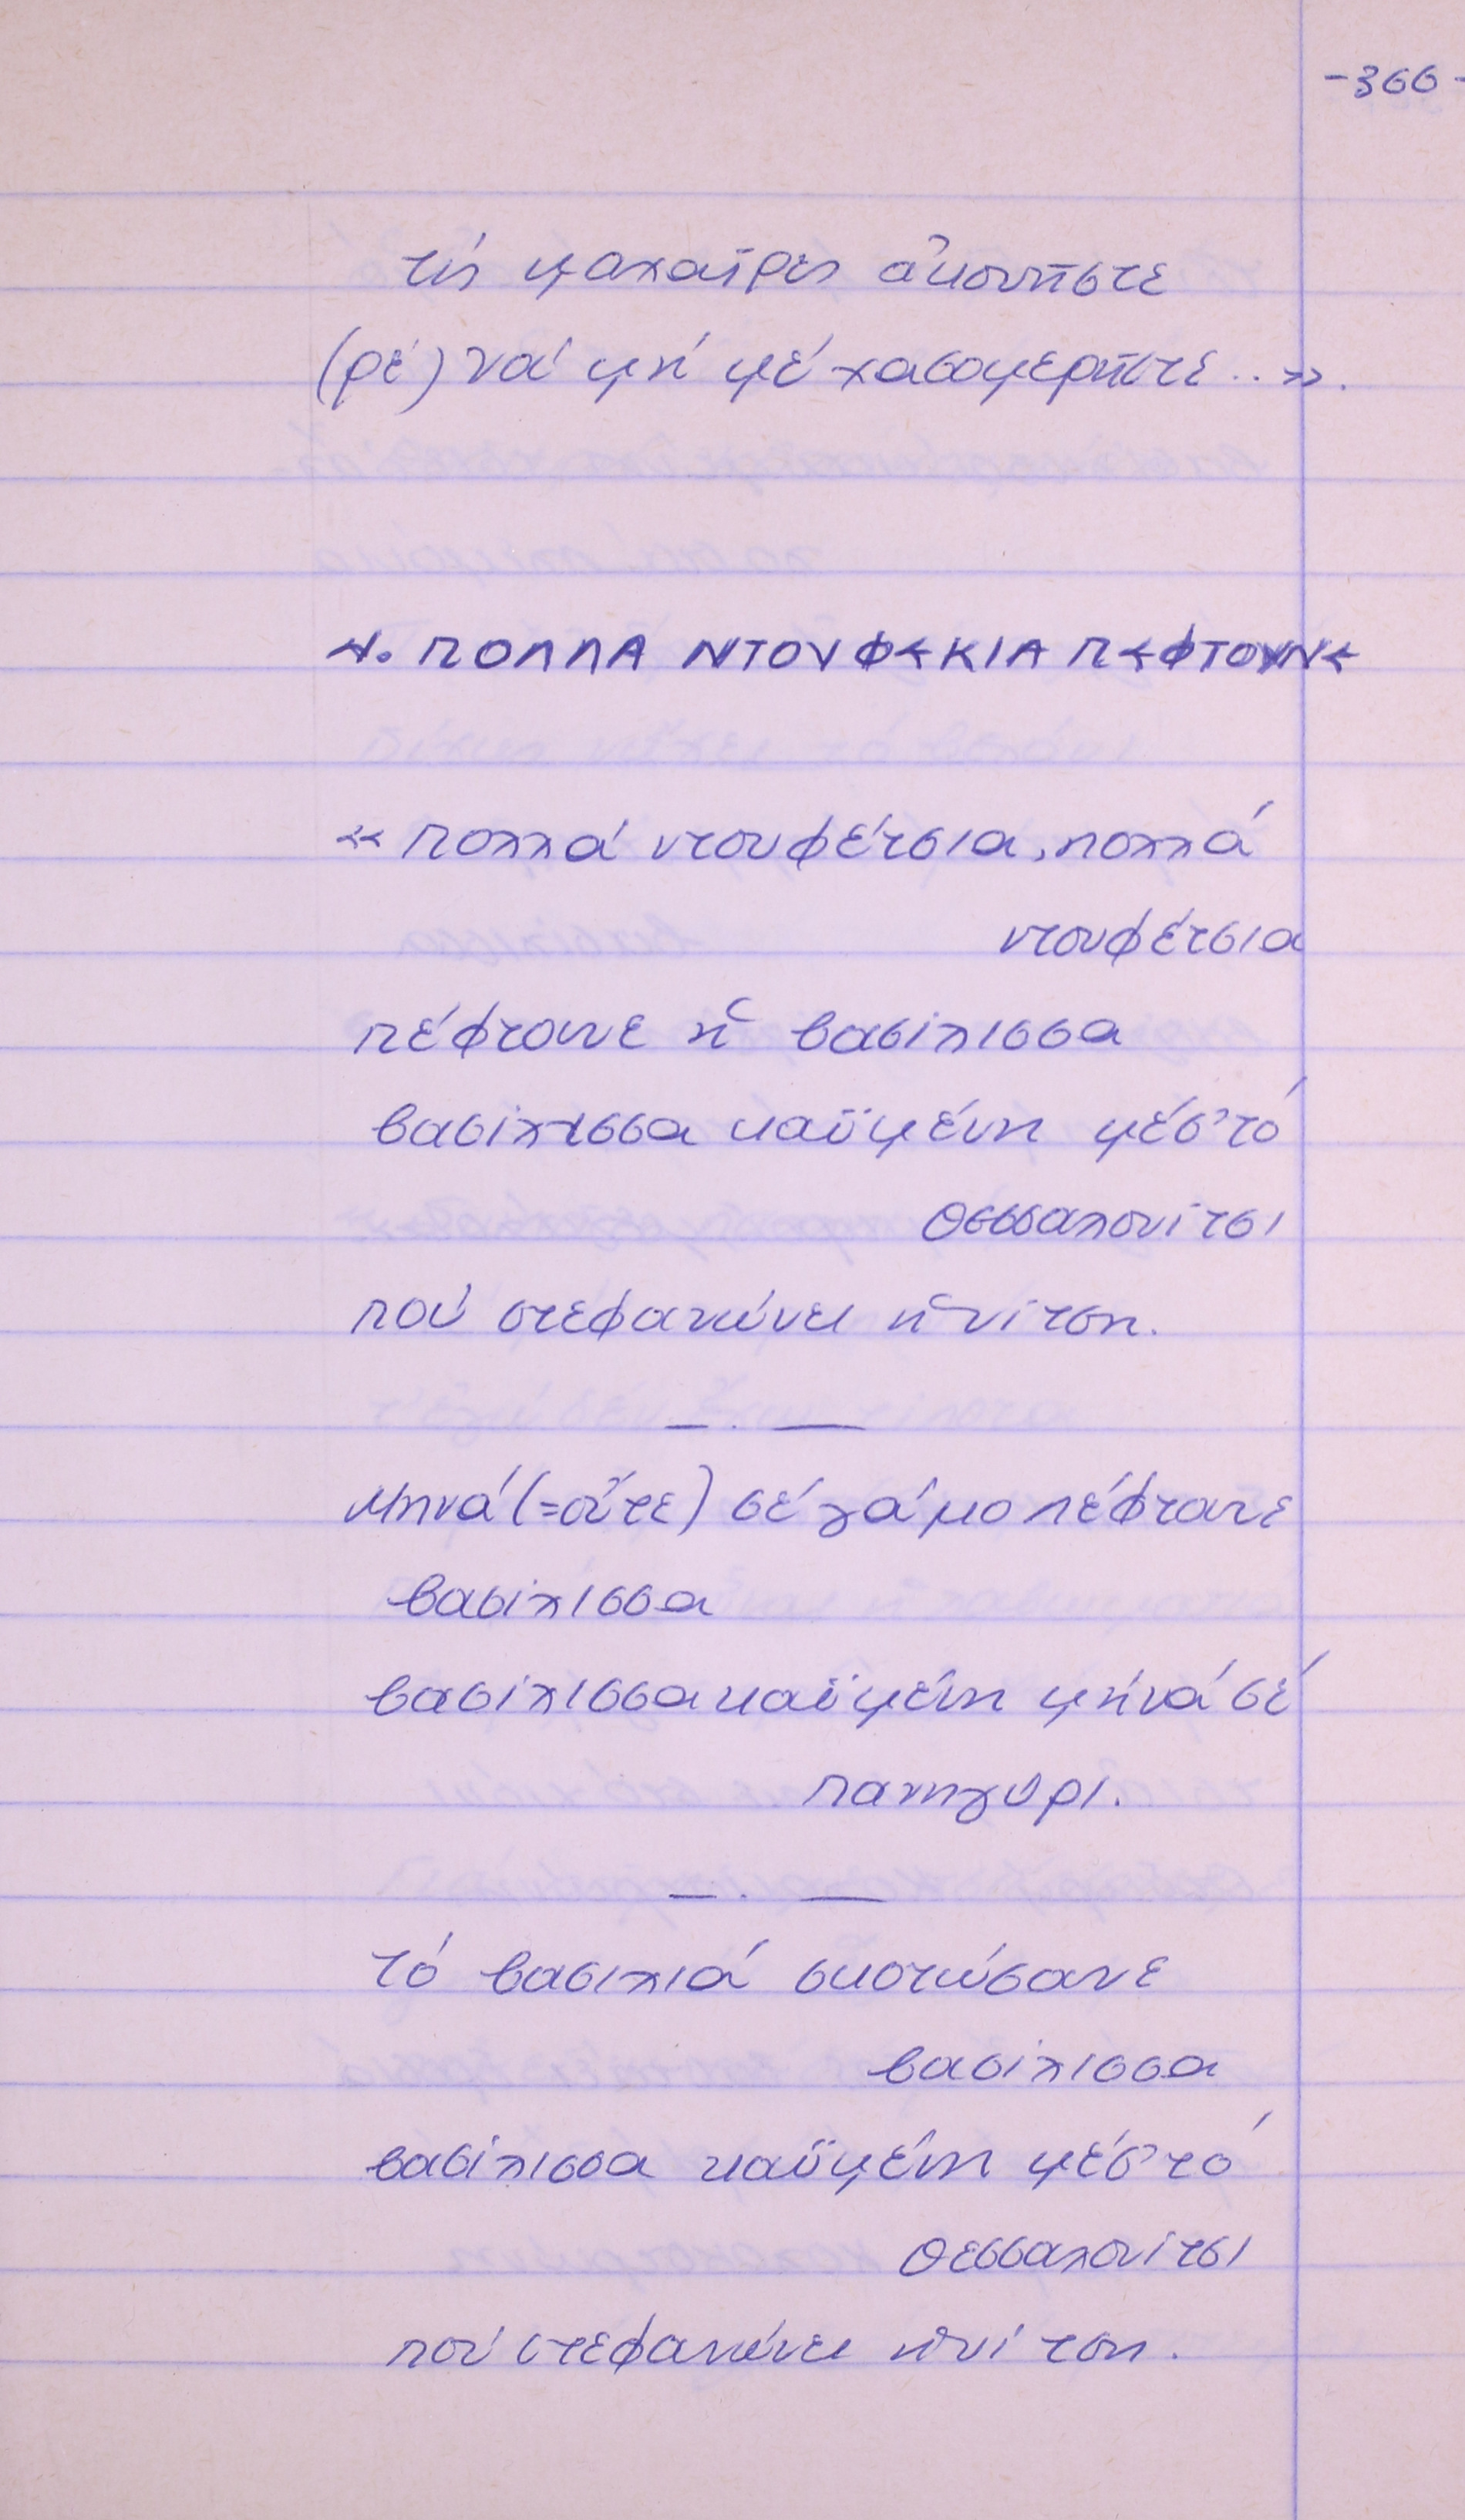 -366-
τίς μαχαῖρες ἀκονῆστε
(ρέ) νά μή μέ χασομερῆστε..».
4. ΠΟΛΛΑ ΝΤΟΥΦΕΚΙΑ ΠΕΦΤΟΥΝΕ
« Πολλά ντουφέτσια, πολλά
ντουφέτσια
πέφτουνε ἡ βασίλισσα
βασίλισσα καϋμένη μέσ' τό
Θεσσαλονίτσι
πού στεφανώνει ἡ νίτση.
— . —
Μηνά (=οὔτε) σέ γάμο πέφτανε
βασίλισσα
βασίλισσα καϋμένη μήνά σέ
πανηγύρι.
— . —
τό βασιλιά σκοτώσανε
βασίλισσα
βασίλισσα καϋμένη μέσ' τό
Θεσσαλονίτσι
πού στεφανώνει ἡ νίτση.